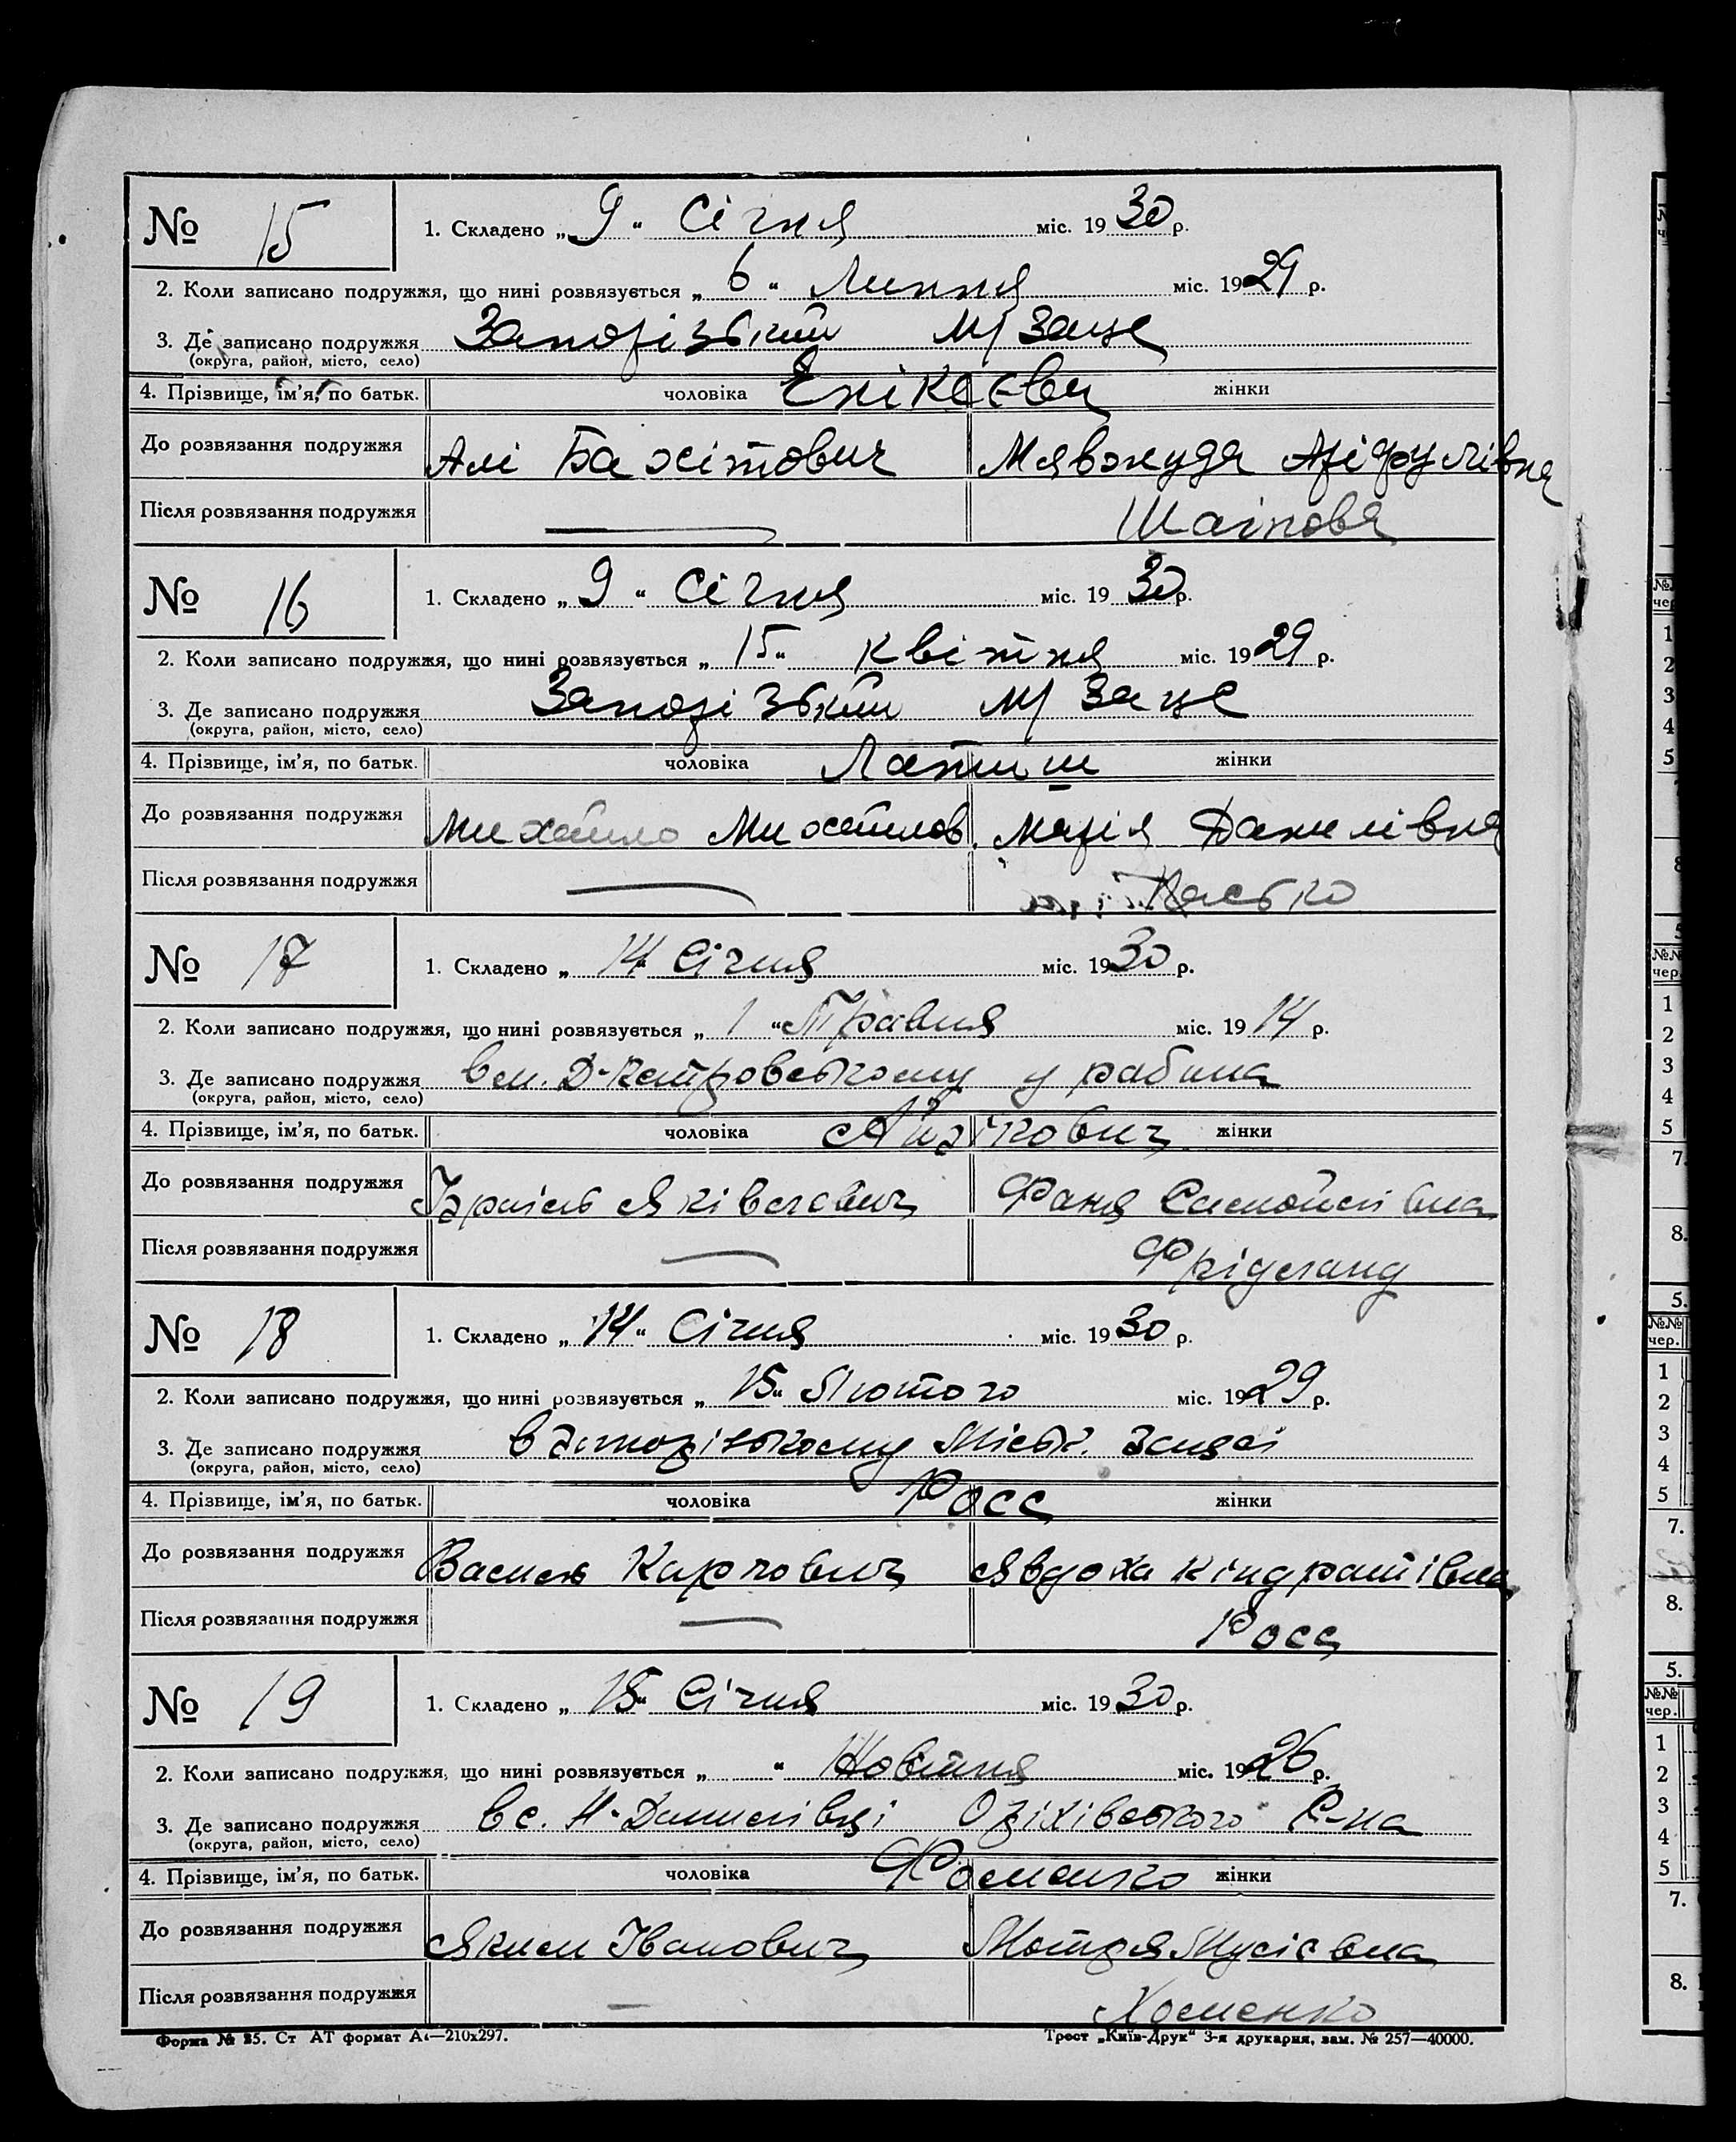 № 15 1. Складено „ 9 “ Січня міс. 19 30 р.
2. Коли записано подружжя, що нині розвязується „ 6 “ Липня міс. 19 29 р.
3. Де записано подружжя Запорізький М/Загс
(округа, район, місто, село)
4. Прізвище, ім'я, по батьк. чоловіка Єнікєєви жінки
До розвязання подружжя Алі Бахітович Мявжуда Аріфулівна
Після розвязання подружжя — Шаіпова
№ 16 1. Складено „ 9 “ Січня міс. 19 30 р.
2. Коли записано подружжя, що нині розвязується „ 15 “ квітня міс. 19 29 р.
3. Де записано подружжя Запорізький М/Загс
(округа, район, місто, село)
4. Прізвище, ім'я, по батьк. чоловіка Латиш жінки
До розвязання подружжя Михайло Михайлов. Марія Данилівна
Після розвязання подружжя — Пасько
№ 17 1. Складено „ 14 “ Січня міс. 19 30 р.
2. Коли записано подружжя, що нині розвязується „ 1 “ Травня міс. 19 14 р.
3. Де записано подружжя в м. Д-петровському у рабина
(округа, район, місто, село)
4. Прізвище, ім'я, по батьк. чоловіка Айзікович жінки
До розвязання подружжя Ізраїль Яківлевич Фаня Самойлівна
Після розвязання подружжя — Фрідланд
№ 18 1. Складено „ 14 “ Січня міс. 19 30 р.
2. Коли записано подружжя, що нині розвязується „ 15 “ Лютого міс. 19 29 р.
3. Де записано подружжя в Запорізькому Міськ. загсі
(округа, район, місто, село)
4. Прізвище, ім'я, по батьк. чоловіка Росс жінки
До розвязання подружжя Василь Карпович Явдоха Кіндратівна
Після розвязання подружжя — Росс
№ 19 1. Складено „ 15 “ Січня міс. 19 30 р.
2. Коли записано подружжя, що нині розвязується „ “ Жовтня міс. 19 26 р.
3. Де записано подружжя в с. Н-Данилівці Оріхівського Р-на
(округа, район, місто, село)
4. Прізвище, ім'я, по батьк. чоловіка Фоменко жінки
До розвязання подружжя Яким Іванович Мотря Мусієвна
Після розвязання подружжя — Хоменко
Форма № 25. Ст АТ формат А4—210х297. Трест „Київ-Друк“ 3-я друкарня, зам. № 257—40000.